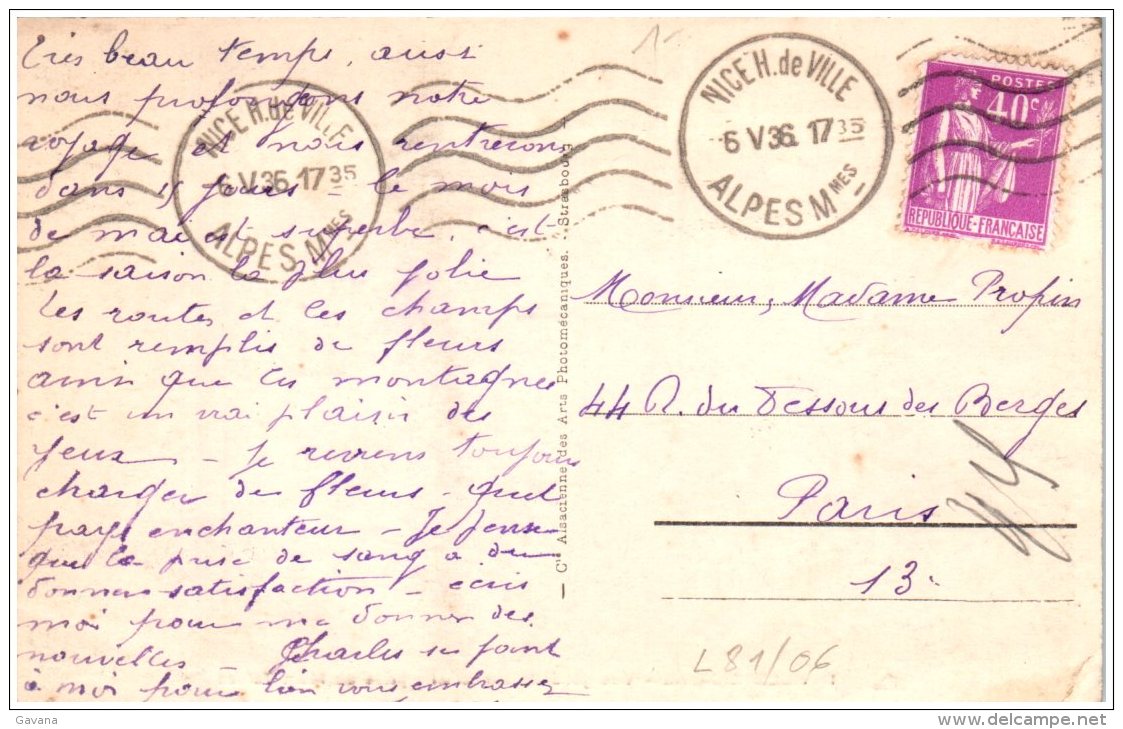 Très beau temps, aussi
nous profitons notre
voyage et nous rentrerons
dans 15 jours - le mois
de mai est superbe, c'est
la saison la plus jolie
Les routes et les champs
sont remplis de fleurs
ainsi que les montagnes
c'est un vrai plaisir des
yeux - je reviens toujours
chargée de fleurs - quel
pays enchanteur - Je pense
que la prise de sang a du
donner satisfaction - écris
moi pour me donner des
nouvelles - Charles se joint
à moi pour bien vous embrasser
NICE H. de VILLE
6 V 36. 17 35
ALPES Mmes
- Cie Alsacienne des Arts Photomécaniques. - Strasbourg -
1-
NICE H. de VILLE
6 V 36. 17 35
ALPES Mmes
POSTES
40c
REPUBLIQUE-FRANCAISE
Monsieur, Madame Propin
44 R. du Dessous des Berges
Paris
13.
L81/06
Gavana
www.delcampe.net